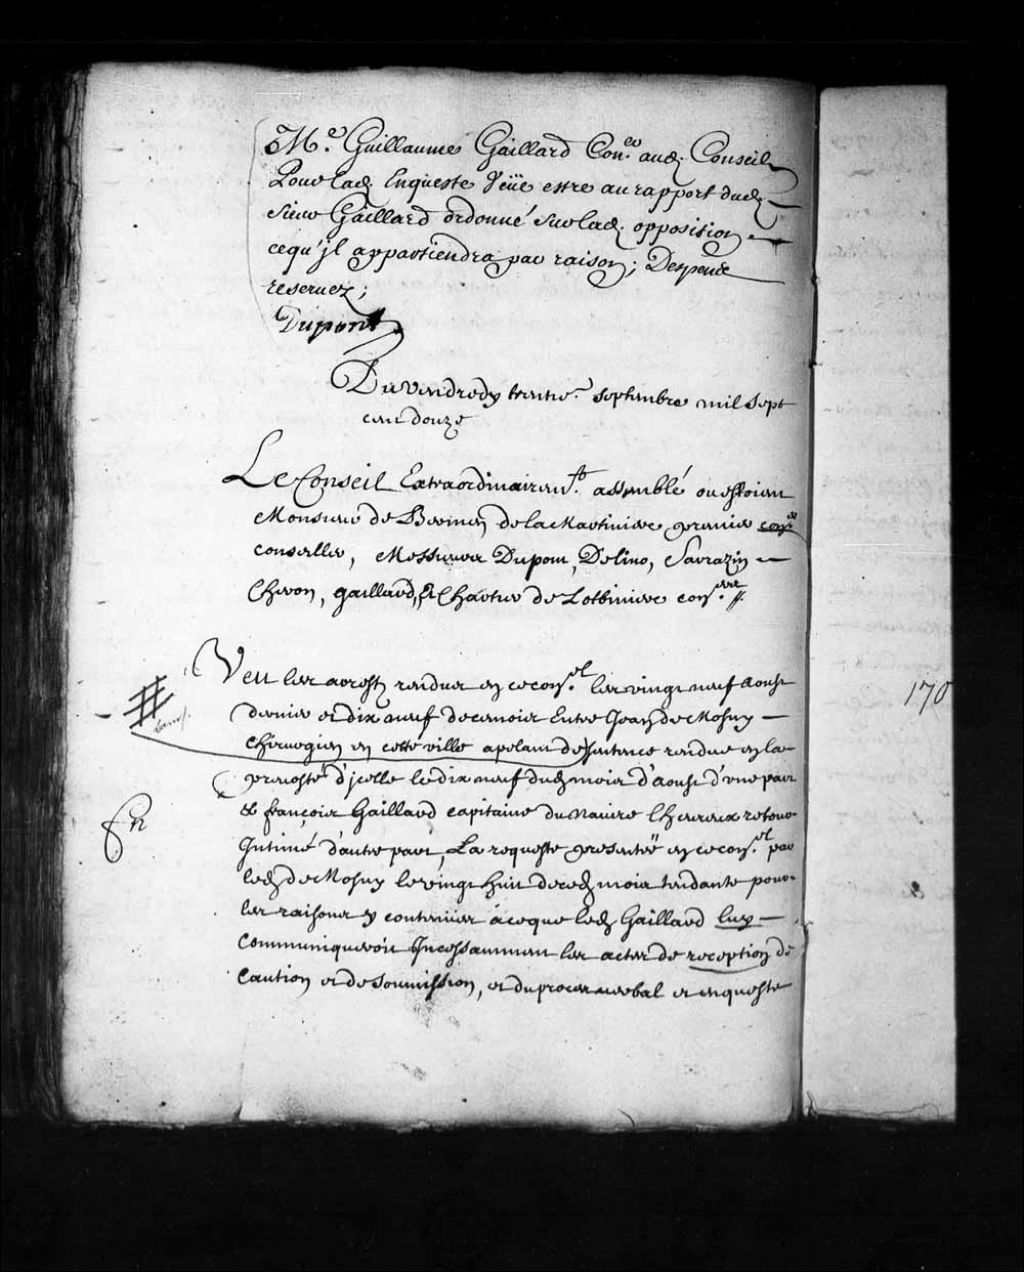 Me. Guillaume Gaillard Coner. aud. Conseil
Pour lad. Enqueste Veüe estre au rapport dud.
Sieur Gaillard ordonné sur lad. opposition
ce qu'jl appartiendra par raison; Despens
reservez;
Dupont
Du vendredy trentie. septembre mil sept
cent douze
Le Conseil Extraordinairemt. assemblé ou estoient
Monsieur de Bermen de la Martiniere premier
conseiller, Messieurs Dupont, Delino, Sarrazin
Cheron, gaillard, & Chartier de Lotbiniere cons.ers
Veu les arrests rendus en ce con.el les vingt neuf aoust
dernier et dix neuf de ce mois Entre Jean de Mosny
Chirurgien en cette ville apelant de sentence rendue en la
prevosté d'jcelle le dix neuf dud. mois d'aoust d'une part
& françois Gaillard capitaine du Navire Lheureux retour
Intimé d'autre part, La requeste presentée en ce con.el par
led. de Mosny le vingt huit de ced. mois tendante pour
les raisons y contenues a ce que led. Gaillard luy
Communiqueroit Incessamment les actes de reception de
Caution et de soumission, et du proces verbal et enqueste
170